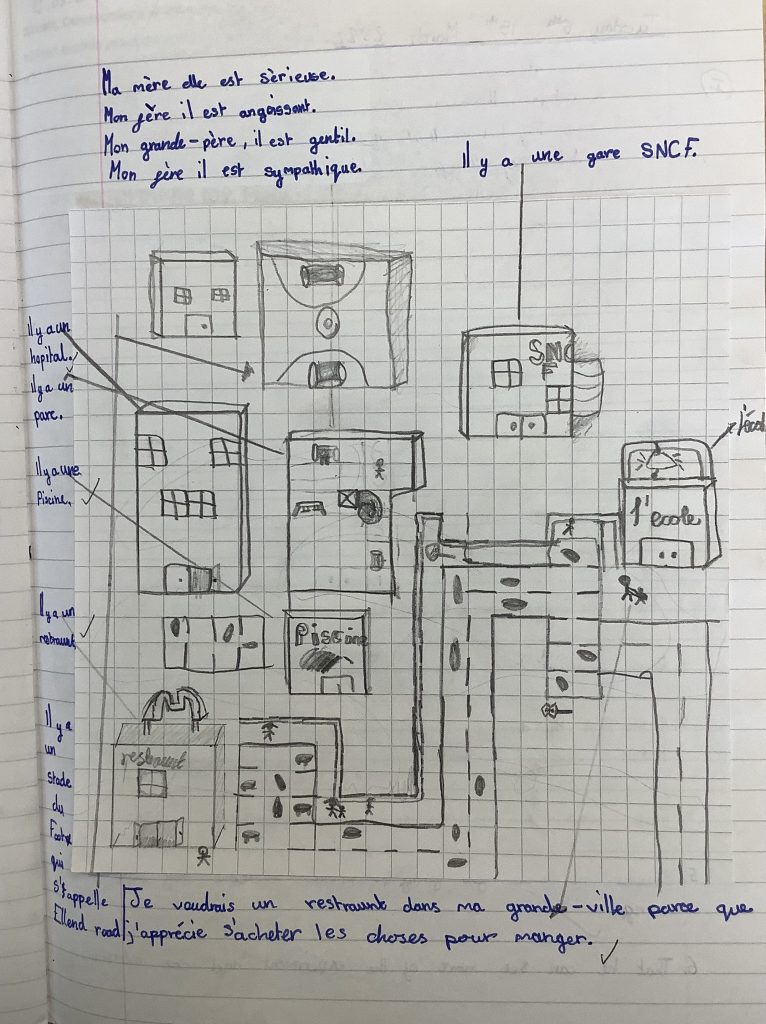 Ma mère elle est sèrieuse.
Mon fère il est angoissant.
Mon grande-père, il est gentil.
Mon fère il est sympathique.
Il y a une gare SNCF.
SNC
F
il y a un
hopital.
il y a un
parc.
il y a une
Piscine.
l'ecole
Il y a un
restraunt
Piscine
restraunt
Il y a
un
stade
du
qui
s'appelle
Elland road
Je voudrais un restraunt dans ma grande-ville parce que
j'apprécie s'acheter les choses pour manger.